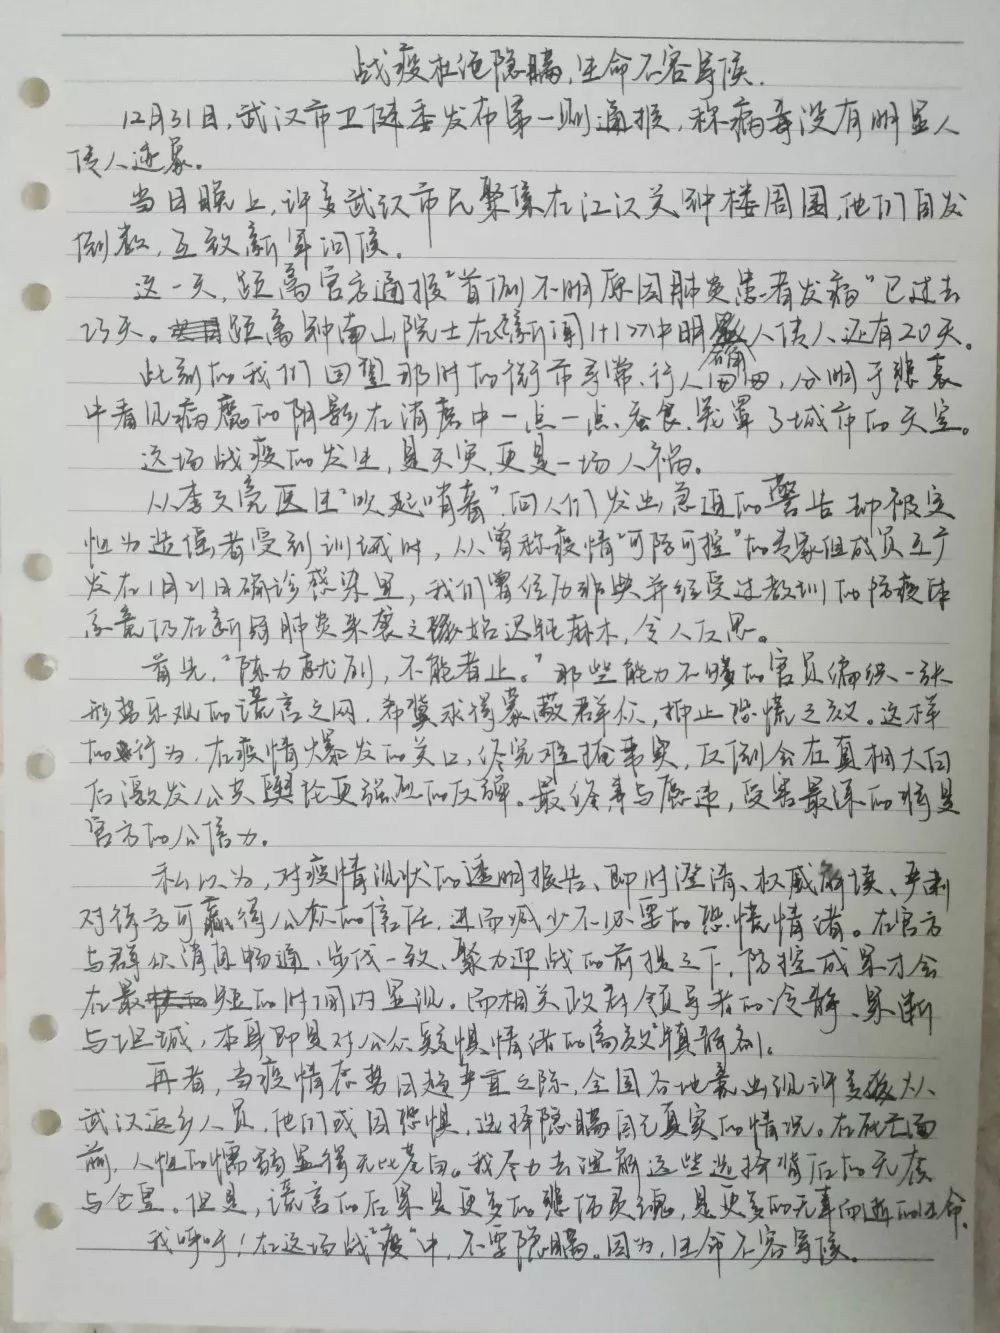 战疫杜绝隐瞒,生命不容等候.
12月31日,武汉市卫健委发布第一则通报,称病毒没有明显人
传人迹象。
当日晚上,许多武汉市民聚集在江汉关钟楼周围,他们自发
倒数,互致新年问候。
这一天,距离官方通报“首例不明原因肺炎患者发病”已过去
23天。距离钟南山院士在《新闻1+1》中明确人传人还有20天。
此刻的我们回望那时的街市寻常、行人,分明于悲哀
中看见病魔的阴影在消磨中一点一点蚕食、笼罩了城市的天空。
这场战疫的发生,是天灾,更是一场人祸。
从李文亮医生“吹起哨声”向人们发出急迫的警告却被定
性为造谣者受到训诫时,从曾称疫情“可防可控”的专家组成员王广
发在1月21日确诊感染里,我们曾经历非典并经受过教训的防疫体
系竟仍在新冠肺炎来袭之始迟钝麻木,令人反思。
首先,“陈力就列,不能者止。”那些能力不够的官员编织一张
形势乐观的谎言之网,希冀求得蒙蔽群众,抑止恐慌之效。这样
的行为,在疫情爆发的关口,终究难掩事实,反倒会在真相大白
后激发公共舆论更强烈的反弹。最终事与愿违,受害最深的将是
官方的公信力。
私以为,对疫情现状的透明报告、即时澄清、权威解读、严肃
对待方可赢得公众的信任,进而减少不必要的恐慌情绪。在官方
与群众消息畅通、步伐一致、聚力迎战的前提之下,防控成果才会
在最短的时间内显现。而相关政府领导者的冷静、果断
与坦诚,本身即是对公众疑惧情绪的高效“镇静剂”。
再者,当疫情态势日趋严重之际,全国各地竟出现许多从
武汉返乡人员,他们或因恐惧,选择隐瞒自己真实的情况。在死亡面
前,人性的懦弱显得无比苍白。我尽力去理解这些选择背后的无奈
与。但是,谎言的后果是更多的悲伤灵魂,是更多的无辜而逝的生命。
我呼吁!在这场战“疫”中,不要隐瞒。因为,生命不容等候。